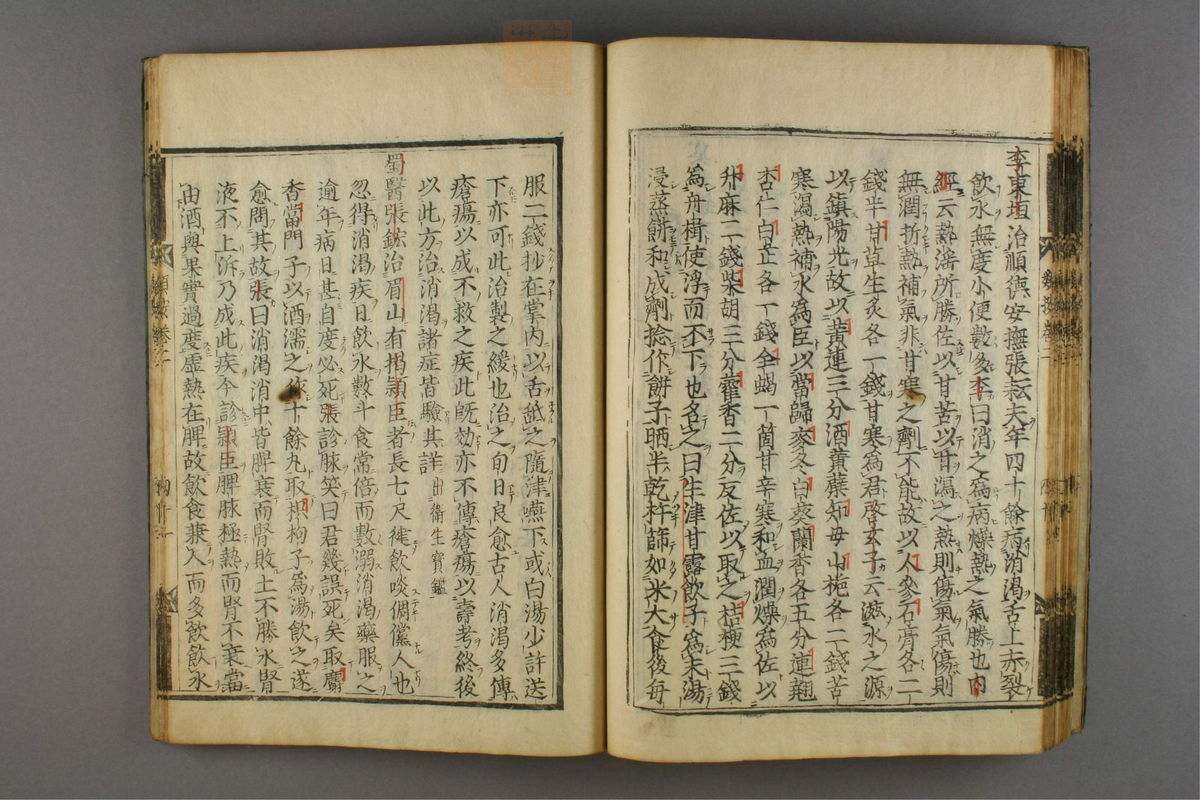 李東垣治順德安撫張耘夫年四十餘病消渴舌上赤裂
飲水無度小便數多李曰消之為病燥熱之氣勝也內
經云熱淫所勝佐以甘苦以甘瀉之熱則傷氣氣傷則
無潤折熱補氣非甘寒之劑不能故以人參石膏各二
錢半甘草生炙各一錢甘寒為君啓玄子云滋水之源
以鎮陽光故以黃連三分酒黃蘗知母山梔各二錢苦
寒瀉熱補水為臣以當歸麥冬白葵蘭香各五分連翹
杏仁白芷各一錢全蝎一箇甘辛寒和血潤燥為佐以
升麻二錢柴胡三分藿香二分反佐以取之桔梗三錢
為舟楫使浮而不下也名之曰生津甘露飲子為末湯
浸蒸餅和成劑捻作餅子晒半乾杵篩如米大食後每
類案卷二
服二錢抄在掌內以舌舐之隨津嚥下或白湯少許送
下亦可此治製之緩也治之旬日良愈古人消渴多傳
瘡瘍以成不救之疾此既効亦不傳瘡瘍以壽考終後
以此方治消渴諸症皆驗其詳出衛生寶鑑
蜀醫張鋐治眉山有揭穎臣者長七尺健飲啖倜儻人也
忽得消渴疾日飲水數斗食常倍而數溺消渴藥服之
逾年病日甚自度必死張診脉笑曰君幾誤死矣取麝
香當門子以酒濡之作十餘丸取枳枸子為湯飲之遂
愈問其故張曰消渴消中皆脾衰而腎敗土不勝水腎
液不上泝乃成此疾今診穎臣脾脉極熱而腎不衰當
由酒與果實過度虛熱在脾故飲食兼人而多飲飲水